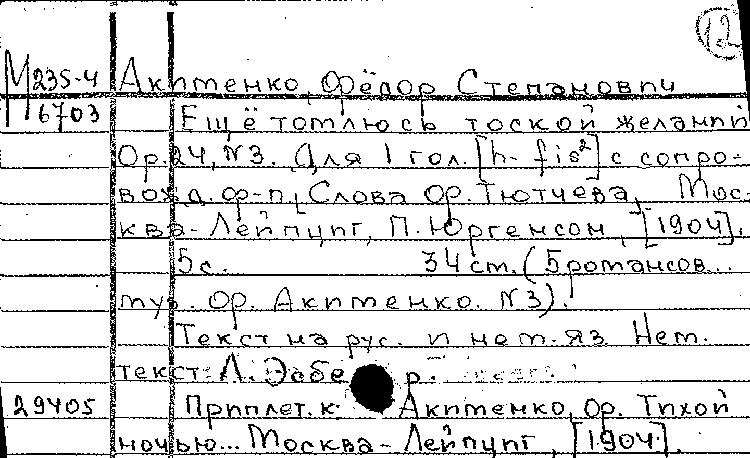 12
М 235-4 Акименко, Фёдор Степанович
6703 Ещё томлюсь тоской желаний
Op. 24, N3. Для 1 гол. [h-fis²] с сопро-
вожд. ф-п. Слова Ф. Тютчева, Мос-
ква-Лейпциг, П. Юргенсон, [1904].
5 с. 34 см. (5 романсов...
муз. Ф. Акименко. N3).
Текст на рус. и нем. яз. Нем.
текст:
29405 Приплет. к: Акименко, Ф. Тихой
ночью... Москва-Лейпциг, [1904].